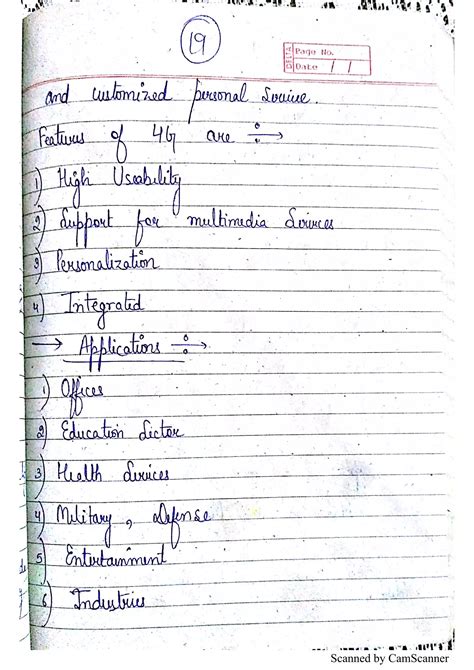 19
DELTA
Page No.
Date / /
and customized personal Service.
Features of 4G are ÷→
1) High Useability
2) Support for multimedia Services
3) Personalization
4) Integrated
→ Applications ÷→
1) Offices
2) Education Sector
3) Health Services
4) Military, Defense
5) Entertainment
6) Industries
Scanned by CamScanner